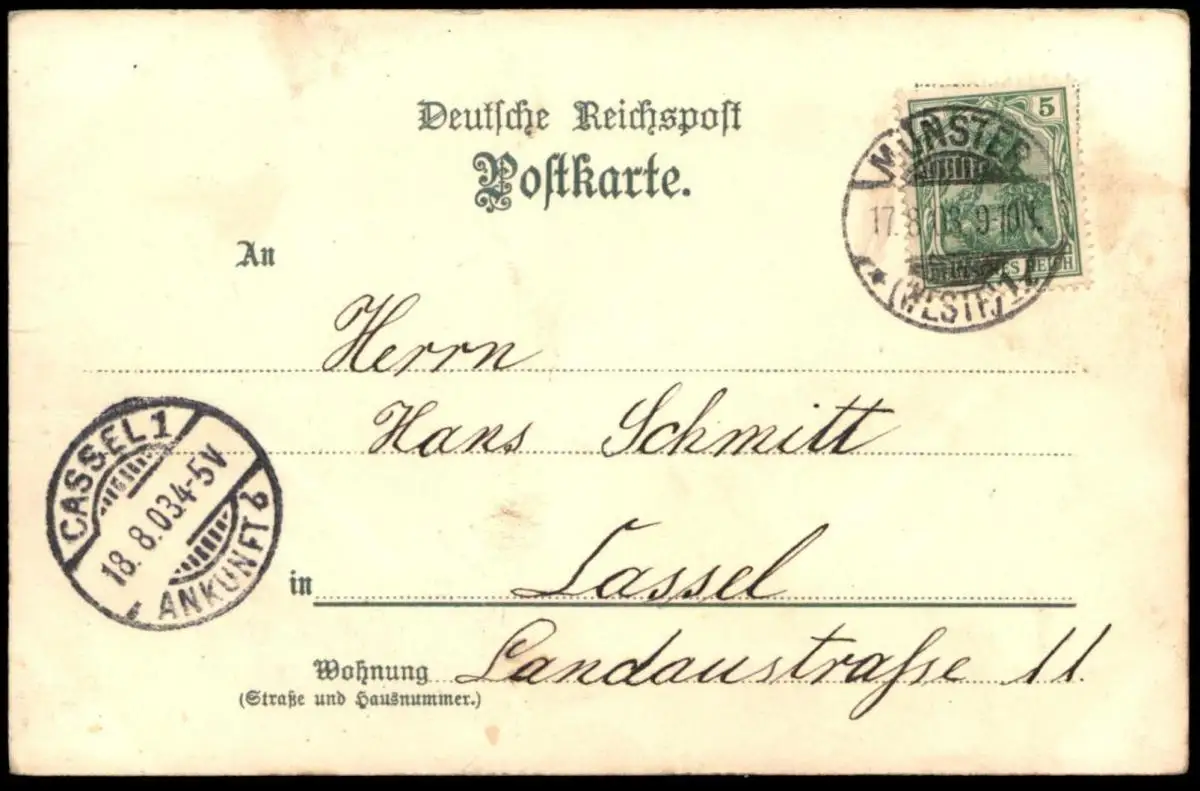 Deutsche Reichspost
Postkarte.
5
DEUTSCHES REICH
MÜNSTER
17.8.03. 9-10 V.
* (WESTF.) 1
An
Herrn
Hans Schmitt
CASSEL 1
18.8.03.4-5V
ANKUNFT b
in Cassel
Wohnung Landaustraße 11.
(Straße und Hausnummer.)